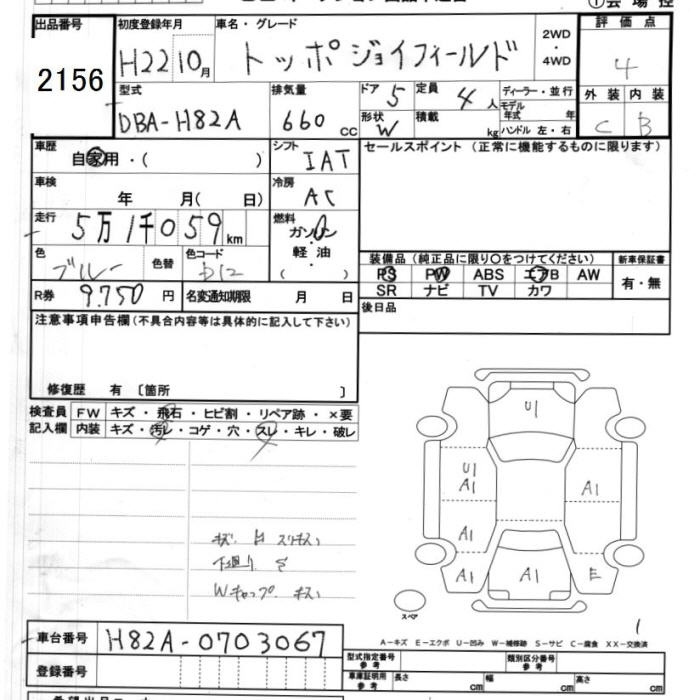 ①会場控
出品番号 初度登録年月 車名・グレード 2WD ・ 4WD 評価点
2156 H22 10月 トッポ ジョイフィールド 4
型式 排気量 ドア 5 定員 4人 ディーラー・並行 外装 内装
DBA-H82A 660cc 形状 W 積載 kg モデル年式 年 ハンドル 左・右 C B
車歴 自家用・( ) シフト IAT セールスポイント(正常に機能するものに限ります)
車検 年 月( 日) 冷房 AC
走行 5万1千059km 燃料 ガソリン・軽油・( )
色 ブルー 色替 色コード 装備品(純正品に限り〇をつけてください) 新車保証書
PS PW ABS エアB AW 有・無
SR ナビ TV カワ
R券 9.750円 名変通知期限 月 日 後日品
注意事項申告欄(不具合内容等は具体的に記入して下さい)
修復歴 有 〔箇所 〕
検査員 FW キズ・飛石・ヒビ割・リペア跡・×要
記入欄 内装 キズ・汚レ・コゲ・穴・スレ・キレ・破レ
U1
U1
A1 A1
A1
A1 A1 E
下廻り S
Wキャップ キズ
スペア
1
A-キズ E-エクボ U-凹み W-補修跡 S-サビ C-腐食 XX-交換済
車台番号 H82A-0703067
型式指定番号 参考 類別区分番号 参考
登録番号 車庫証明用 参考 長さ cm 幅 cm 高さ cm